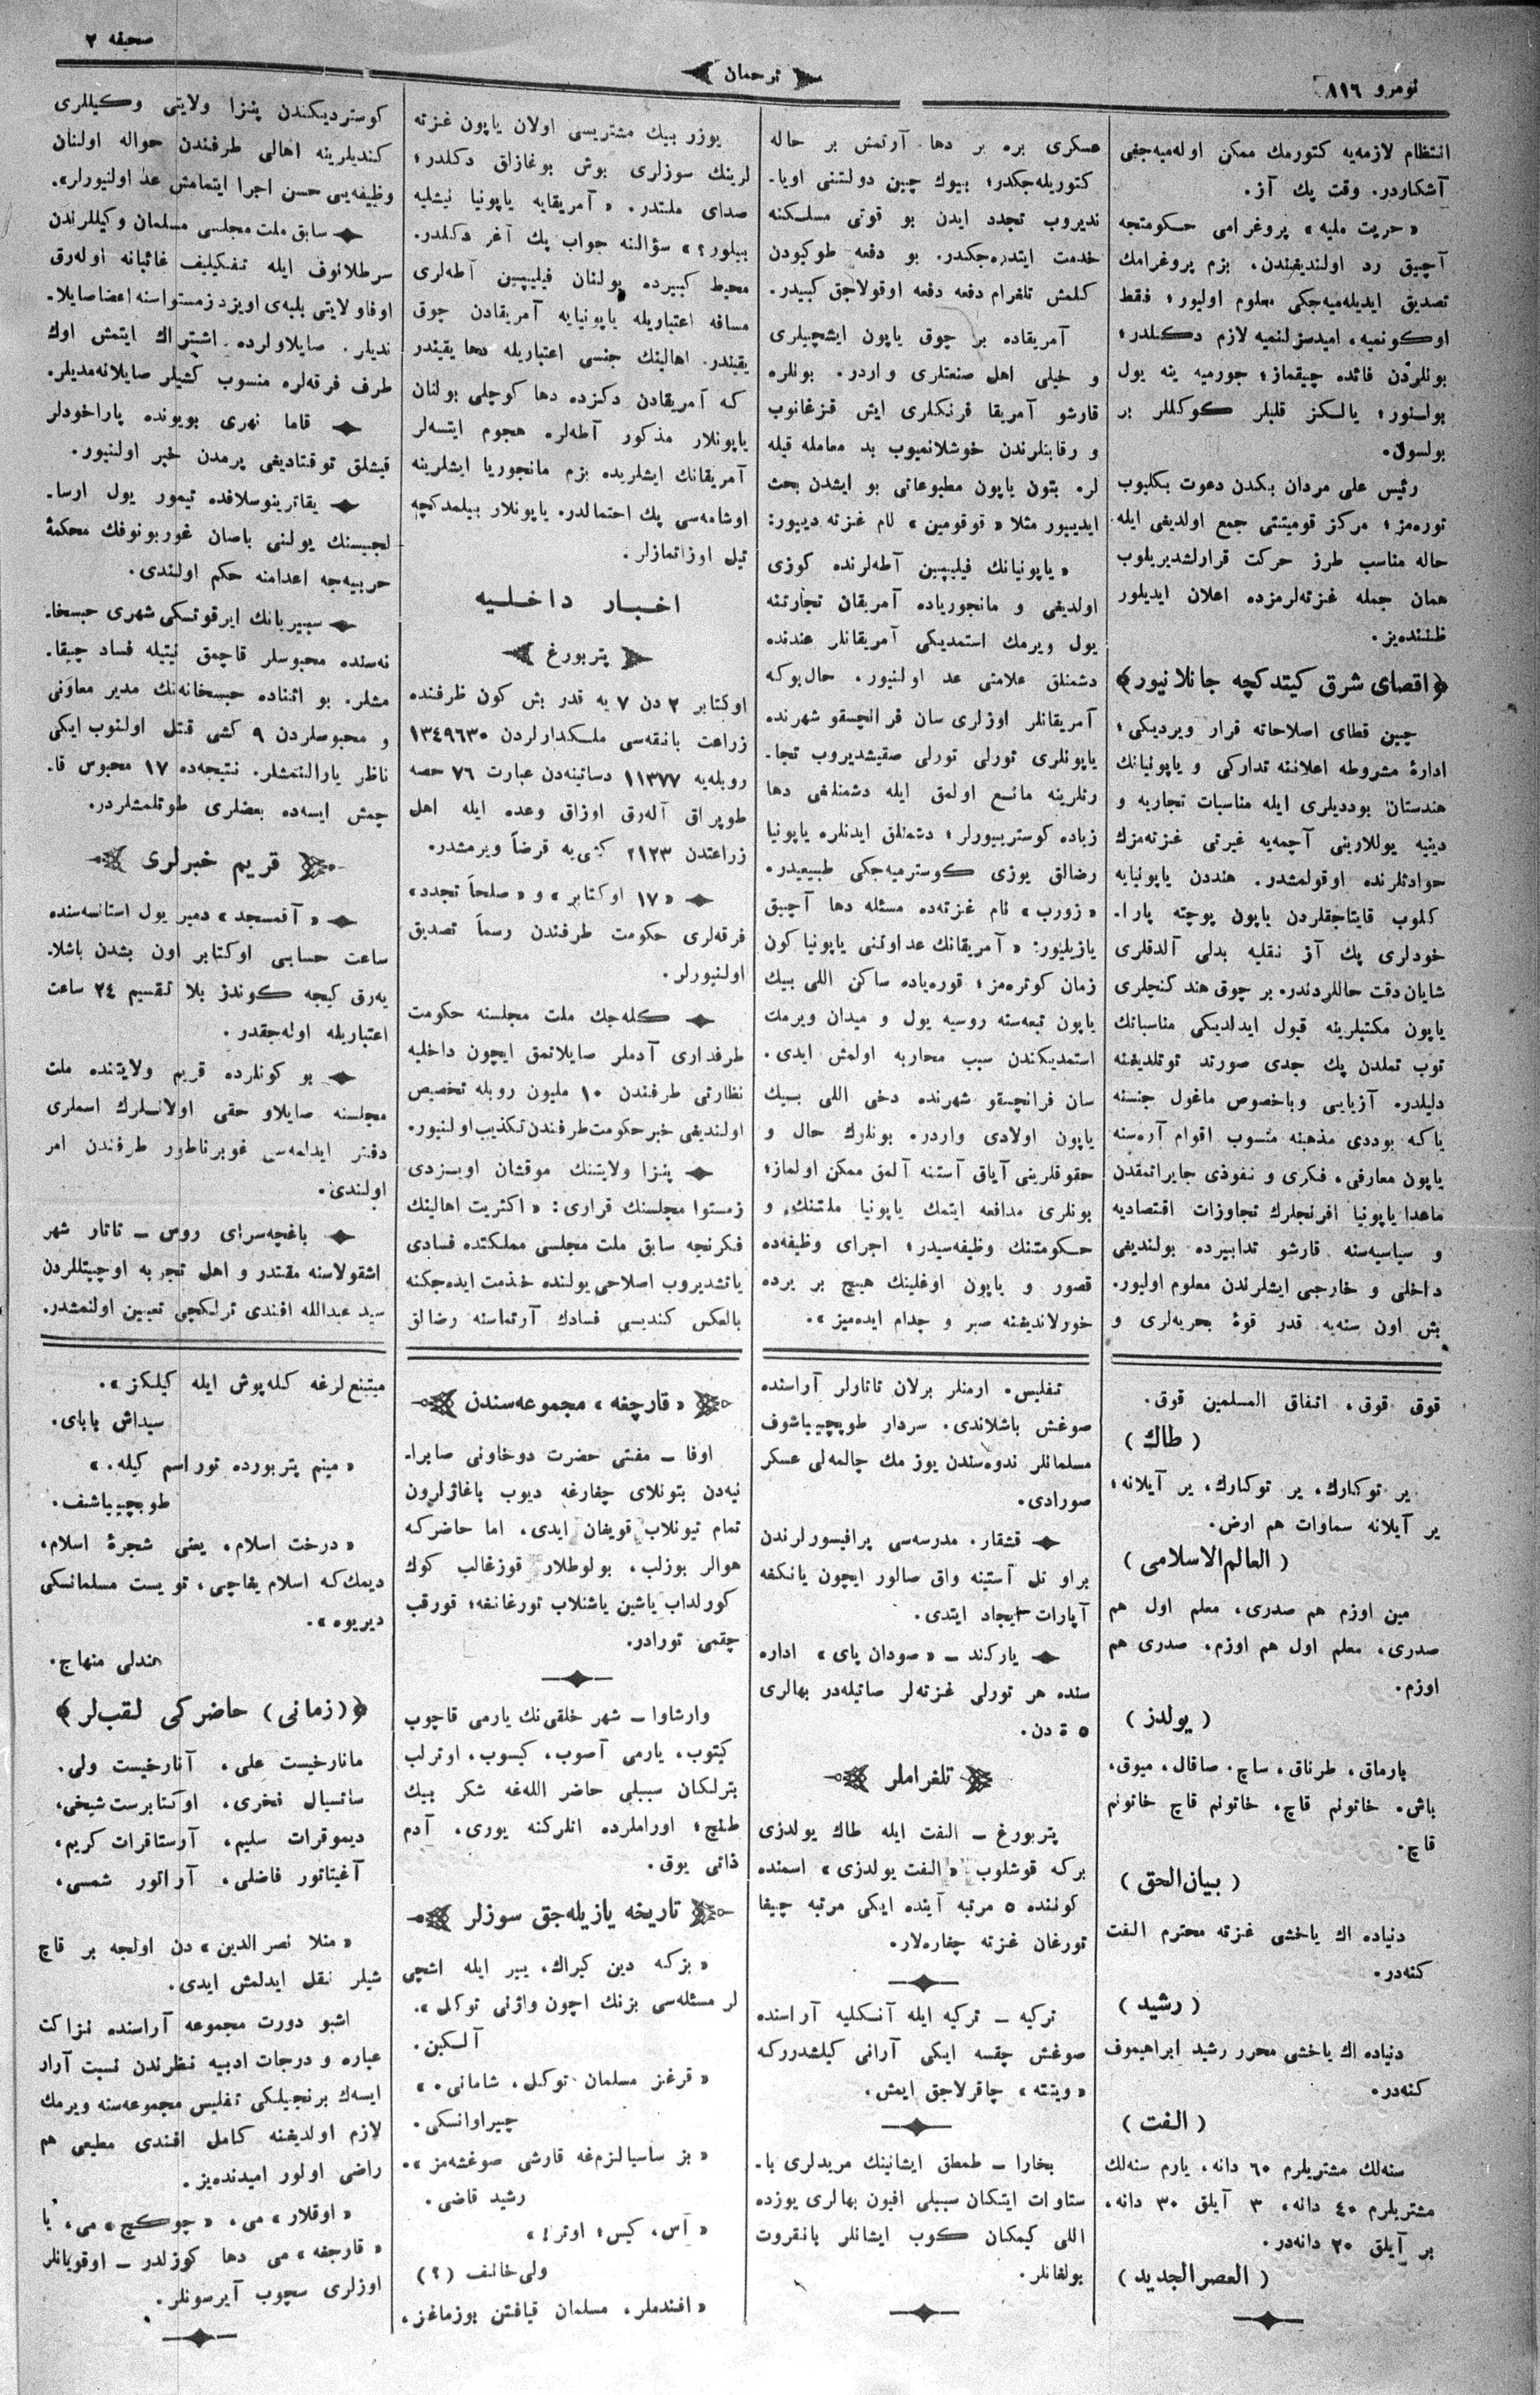 نومرو ٨١٦
ترجمان
صحيفه ٢
انتظام لازمه‌يه كتورمك ممكن اوله‌ميه‌جغى
آشكاردر. وقت پك آز.
« حريت مليه » پروغرامى حكومتجه
آچيق رد اولنديغندن، بزم پروغرامك
تصديق ايديله‌ميه‌جكى معلوم اوليور؛ فقط
اوكونميه، اميدسزلنميه لازم دكلدر؛
بونلردن فائده چيقماز؛ جورميه ينه يول
بولنور؛ يالكز قلبلر كوكللر بر
بولسون.
رئيس على مردان بكدن دعوت بكليوب
توره‌مز؛ مركز قوميتتى جمع اولديغى ايله
حاله مناسب طرز حركت قرارلشديريلوب
همان جمله غزته‌لرمزده اعلان ايديلور
ظننده‌يز.
﴿ اقصاى شرق كيتدكچه جانلانيور ﴾
چين قطاى اصلاحاته قرار ويرديكى؛
ادارۀ مشروطه اعلاننه تداركى و ياپونيانك
هندستان بودديلرى ايله مناسبات تجاريه و
دينيه يوللارينى آچمه‌يه غيرتى غزته‌مزك
حوادثلرنده اوقولمشدر. هنددن ياپونيايه
كلوب قايتاجقلردن ياپون پوچته پارا-
خودلرى پك آز نقليه بدلى آلدقلرى
شايان دقت حاللردندر. بر چوق هند كنجلرى
ياپون مكتبلرينه قبول ايدلديكى مناسباتك
توب تملدن پك جدى صورتد توتلديغنه
دليلدر. آزيايى وباخصوص ماغول جنسنه
ياكه بوددى مذهبنه منسوب اقوام آره‌سنه
ياپون معارفى، فكرى و نفوذى جايراتمقدن
ماعدا ياپونيا افرنجلرك تجاوزات اقتصاديه
و سياسيه‌سنه قارشو تدابيرده بولنديغى
داخلى و خارجى ايشلرندن معلوم اوليور.
بش اون سنه‌يه قدر قوۀ بحريه‌لرى و
عسكرى بره بر دها آرتمش بر حاله
كتوريله‌جكدر؛ بيوك چين دولتنى اويا-
نديروب تجدد ايدن بو قوتى مسلكنه
خدمت ايتدره‌جكدر. بو دفعه طوكيودن
كلمش تلغرام دفعه دفعه اوقولاجق كبيدر.
آمريقاده بر چوق ياپون ايشچيلرى
و خيلى اهل صنعتلرى واردر. بونلره
قارشو آمريقا فرنكلرى ايش قزغانوب
و رقابتلرندن خوشلانميوب بد معامله قيله
لر. بتون ياپون مطبوعاتى بو ايشدن بحث
ايدييور مثلا « قوقومين » نام غزته دييور:
« ياپونيانك فيليپين آطه‌لرنده كوزى
اولديغى و مانجورياده آمريقان تجارتنه
يول ويرمك استمديكى آمريقانلر عندنده
دشمنلق علامتى عد اولنيور. حال‌بوكه
آمريقانلر اوزلرى سان فرانچسقو شهرنده
ياپونلرى تورلى تورلى صقيشديروب تجا-
رتلرينه مانع اولمق ايله دشمنلغى دها
زياده كوستريبورلر؛ دشمنلق ايدنلره ياپونيا
رضالق يوزى كوسترميه‌جكى طبيعيدر.
« زورب » نام غزته‌ده مسئله دها آچيق
يازيليور: « آمريقانك عداوتنى ياپونيا كون
زمان كوتره‌مز؛ قوره‌ياده ساكن اللى بيك
ياپون تبعه‌سنه روسيه يول و ميدان ويرمك
استمديكندن سبب محاربه اولمش ايدى.
سان فرانچسقو شهرنده دخى اللى بيك
ياپون اولادى واردر. بونلرك حال و
حقوقلرينى آياق آستنه آلمق ممكن اولماز؛
بونلرى مدافعه ايتمك ياپونيا ملتنك، و
حكومتنك وظيفه‌سيدر؛ اجراى وظيفه‌ده
قصور و ياپون اوغلينك هيچ بر يرده
خورلانديغنه صبر و چدام ايده‌ميز ».
يوزر بيك مشتريسى اولان ياپون غزته
لرينك سوزلرى بوش بوغازلق دكلدر؛
صداى ملتدر. « آمريقايه ياپونيا نيشليه
بيلور؟ » سؤالنه جواب پك آغر دكلدر.
محيط كبيرده بولنان فيليپين آطه‌لرى
مسافه اعتباريله ياپونيايه آمريقادن چوق
يقيندر. اهالينك جنسى اعتباريله دها يقيندر
كه آمريقادن دكزده دها كوچلى بولنان
ياپونلار مذكور آطه‌لره هجوم ايتسه‌لر
آمريقانك ايشلريده بزم مانجوريا ايشلرينه
اوشامه‌سى پك احتمالدر. ياپونلار بيلمدكچه
تيل اوزاتمازلر.
اخبار داخليه
پتربورغ
اوكتابر ٢ دن ٧ يه قدر بش كون ظرفنده
زراعت بانقه‌سى ملكدارلردن ١٣٤٩٦٣٠
روبله‌يه ١١٣٧٧ دساتينه‌دن عبارت ٧٦ حصه
طوپراق آله‌رق اوزاق وعده ايله اهل
زراعتدن ٢١٢٣ كشى‌يه قرضاً ويرمشدر.
« ١٧ اوكتابر » و « صلحاً تجدد »
فرقه‌لرى حكومت طرفندن رسماً تصديق
اولنيورلر.
كله‌جك ملت مجلسنه حكومت
طرفدارى آدملر صايلاتمق ايچون داخليه
نظارتى طرفندن ١٠ مليون روبله تخصيص
اولنديغى خبر حكومت طرفندن تكذيب اولنيور.
پنزا ولايتنك موقشان اويزدى
زمستوا مجلسنك قرارى: « اكثريت اهالينك
فكرنجه سابق ملت مجلسى مملكتده فسادى
ياتشديروب اصلاحى يولنده خذمت ايده‌جكنه
بالعكس كنديسى فسادك آرتماسنه رضالق
كوسترديكندن پنزا ولايتى وكيللرى
كنديلرينه اهالى طرفندن حواله اولنان
وظيفه‌يى حسن اجرا ايتمامش عد اولنيورلر ».
سابق ملت مجلسى مسلمان وكيللرندن
سرطلانوف ايله تفكيليف غائبانه اوله‌رق
اوفا ولايتى بلبه‌ى اويزد زمستواسنه اعضا صايلا-
نديلر. صايلاولرده اشتراك ايتمش اوك
طرف فرقه‌لره منسوب كشيلر صايلانه‌مديلر.
قاما نهرى بويونده پاراخودلر
قيشلق توقتاديغى پرمدن خبر اولنيور.
يقاترينوسلافده تيمور يول ارسا-
لجييسنك يولنى باصان غوربونوفك محكمۀ
حربيه‌جه اعدامنه حكم اولندى.
سيبيريانك ايرقوتسكى شهرى حبسخا-
نه‌سنده محبوسلر قاچمق نيتيله فساد چيقا-
مشلر. بو اثناده حبسخانه‌نك مدير معاونى
و محبوسلردن ٩ كشى قتل اولنوب ايكى
ناظر يارالنمشلر. نتيجه‌ده ١٧ محبوس قا-
چمش ايسه‌ده بعضلرى طوتلمشلردر.
قريم خبرلرى
« آقمسجد » دمير يول استانسه‌سنده
ساعت حسابى اوكتابر اون بشدن باشلا-
يه‌رق كيجه كوندز بلا تقسيم ٢٤ ساعت
اعتباريله اوله‌جقدر.
بو كونلرده قريم ولايتنده ملت
مجلسنه صايلاو حقى اولانلرك اسملرى
دفتر ايدلمه‌سى غوبرناطور طرفندن امر
اولندى.
باغچه‌سراى روس – تاتار شهر
اشقولاسنه مقتدر و اهل تجربه اوچيتللردن
سيد عبدالله افندى ترلكچى تعيين اولنمشدر.
قوق قوق، اتفاق المسلمين قوق.
( طاك )
ير توكارك، ير توكارك، ير آيلانه؛
ير آيلانه سماوات هم ارض.
( العالم الاسلامى )
مين اوزم هم صدرى، معلم اول هم
صدرى، معلم اول هم اوزم، صدرى هم
اوزم.
( يولدز )
پارماق، طرناق، ساچ. صاقال، ميوق،
باش. خاتونم قاچ، خاتونم قاچ خاتونم
قاچ.
( بيان الحق )
دنياده اك ياخشى غزته محترم الفت
كنه‌در.
( رشيد )
دنياده اك ياخشى محرر رشيد ابراهيموف
كنه‌در.
( الفت )
سنه‌لك مشتريلرم ٦٠ دانه، يارم سنه‌لك
مشتريلرم ٤٠ دانه، ٣ آيلق ٣٠ دانه،
بر آيلق ٢٠ دانه‌در.
( العصر الجديد )
تفليس. ارمنلر برلان تاتارلر آراسنده
صوغش باشلاندى. سردار طوپچيباشوف
مسلمانلر ندوه‌سندن يوز مك چالمه‌لى عسكر
صورادى.
قشقار. مدرسه‌سى پرافيسورلرندن
براو تل آستينه واق صالور ايچون يانكفه
آپارات ايجاد ايتدى.
ياركند – « صودان پاى » اداره
سنده هر تورلى غزته‌لر صاتيله‌در بهالرى
٥ ة دن.
تلغراملر
پتربورغ – الفت ايله طاك يولدزى
بركه قوشلوب « الفت يولدزى » اسمنده
كوننده ٥ مرتبه آينده ايكى مرتبه چيغا
تورغان غزته چغاره‌لار.
تركيه – تركيه ايله آنكليه آراسنده
صوغش چقسه ايكى آرانى كيلشدرركه
« ويتته » چاقرلاجق ايمش.
بخارا – طمطق ايشانينك مريدلرى با-
ستاوات ايتكان سببلى افيون بهالرى يوزده
اللى كيمكان كوب ايشانلر بانقروت
بولغانلر.
« قارچغه » مجموعه‌سندن
اوفا – مفتى حضرت دوخاونى صابرا-
نيه‌دن بتونلاى چغارغه ديوب ياغاژلرون
تمام تيونلاب قويغان ايدى، اما حاضركه
هوالر بوزلب، بولوطلار قوزغالب كوك
كورلداب ياشين ياشنلاب تورغانغه؛ قورقب
چقمى تورادر.
وارشاوا – شهر خلقى‌نك يارمى قاچوب
كيتوب، يارمى آصوب، كيسوب، اوترلب
بترلكان سببلى حاضر الله‌غه شكر بيك
طنچ؛ اوراملرده اتلركنه يورى، آدم
ذاتى يوق.
تاريخه يازيله‌جق سوزلر
« بزكه دين كيراك، يير ايله اشچى
لر مسئله‌سى بزنك اچون واژنى توكل ».
آلكين.
« قرغز مسلمان توكل، شامانى. »
چيراوانسكى.
« بز ساسيالزم‌غه قارشى صوغشه‌مز ».
رشيد قاضى.
« آس، كيس؛ اوتر! »
ولى خائف (؟)
« افندملر، مسلمان قيافتن بوزماغز،
ميتينغ‌لرغه كله‌پوش ايله كيلكز ».
سيداش باباى.
« مينم پتربورده توراسم كيله. »
طوپچيباشف.
« درخت اسلام، يعنى شجرۀ اسلام،
ديمك‌كه اسلام يغاچى، تو يست مسلمانسكى
ديريوه ».
هندلى منهاج.
﴿ (زمانى) حاضركى لقب‌لر ﴾
مانارخيست على، آنارخيست ولى.
ساتسيال فخرى، اوكتابرست شيخى،
ديموقرات سليم، آرستاقرات كريم،
آغيتاتور فاضلى، آراتور شمسى،
« منلا نصر الدين » دن اولجه بر قاچ
شيلر نقل ايدلمش ايدى.
اشبو دورت مجموعه آراسنده نزاكت
عباره و درجات ادبيه نظرندن نسبت آرار
ايسه‌ك برنجيلكى تفليس مجموعه‌سنه ويرمك
لازم اولديغنه كامل افندى مطيعى هم
راضى اولور اميدنده‌يز.
« اوقلار » مى، « چوكچ » مى، يا
« قارجغه » مى دها كوزلدر – اوقويانلر
اوزلرى سچوب آيرسونلر.